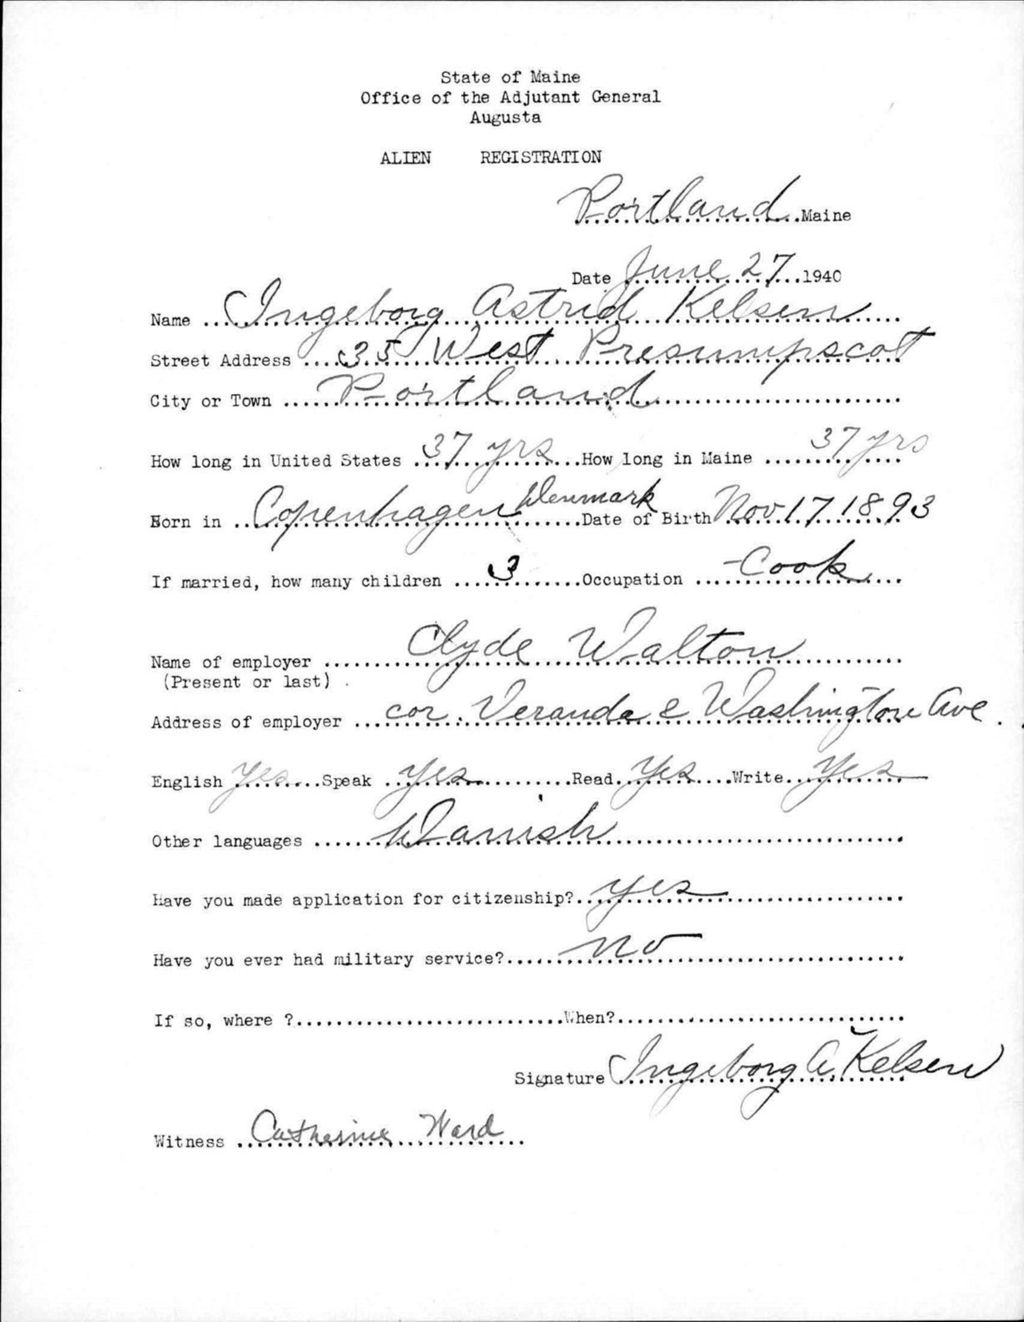 State of Maine
Office of the Adjutant General
Augusta
ALIEN REGISTRATION
Portland Maine
Date June 27 1940
Name Ingeborg Astrid Kelsen
Street Address 35 West Presumpscot
City or Town Portland
How long in United States 37 yrs How long in Maine 37 yrs
Born in Copenhagen Denmark Date of Birth Nov 17 1893
If married, how many children 3 Occupation Cook
Name of employer Clyde Walton
(Present or last)
Address of employer cor. Veranda & Washington Ave.
English Yes Speak Yes Read Yes Write Yes
Other languages Danish
Have you made application for citizenship? yes
Have you ever had military service? no
If so, where ? When?
Signature Ingeborg A Kelsen
Witness Catherine Ward